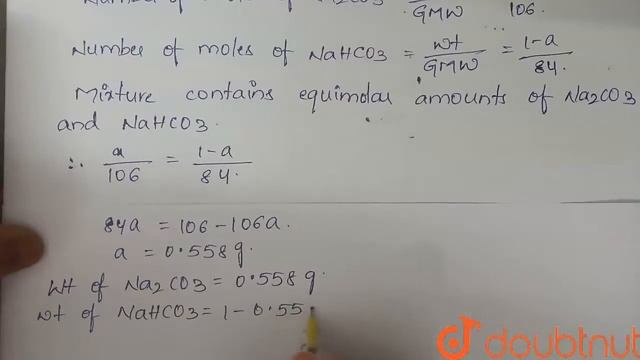 Number of moles of Na2CO3 GMW 106.
Number of moles of NaHCO3 = wt/GMW = 1-a/84.
Mixture contains equimolar amounts of Na2CO3
and NaHCO3.
∴ a/106 = 1-a/84.
84a = 106 - 106a.
a = 0.558 g.
Wt of Na2CO3 = 0.558 g.
wt of NaHCO3 = 1 - 0.55
doubtnut